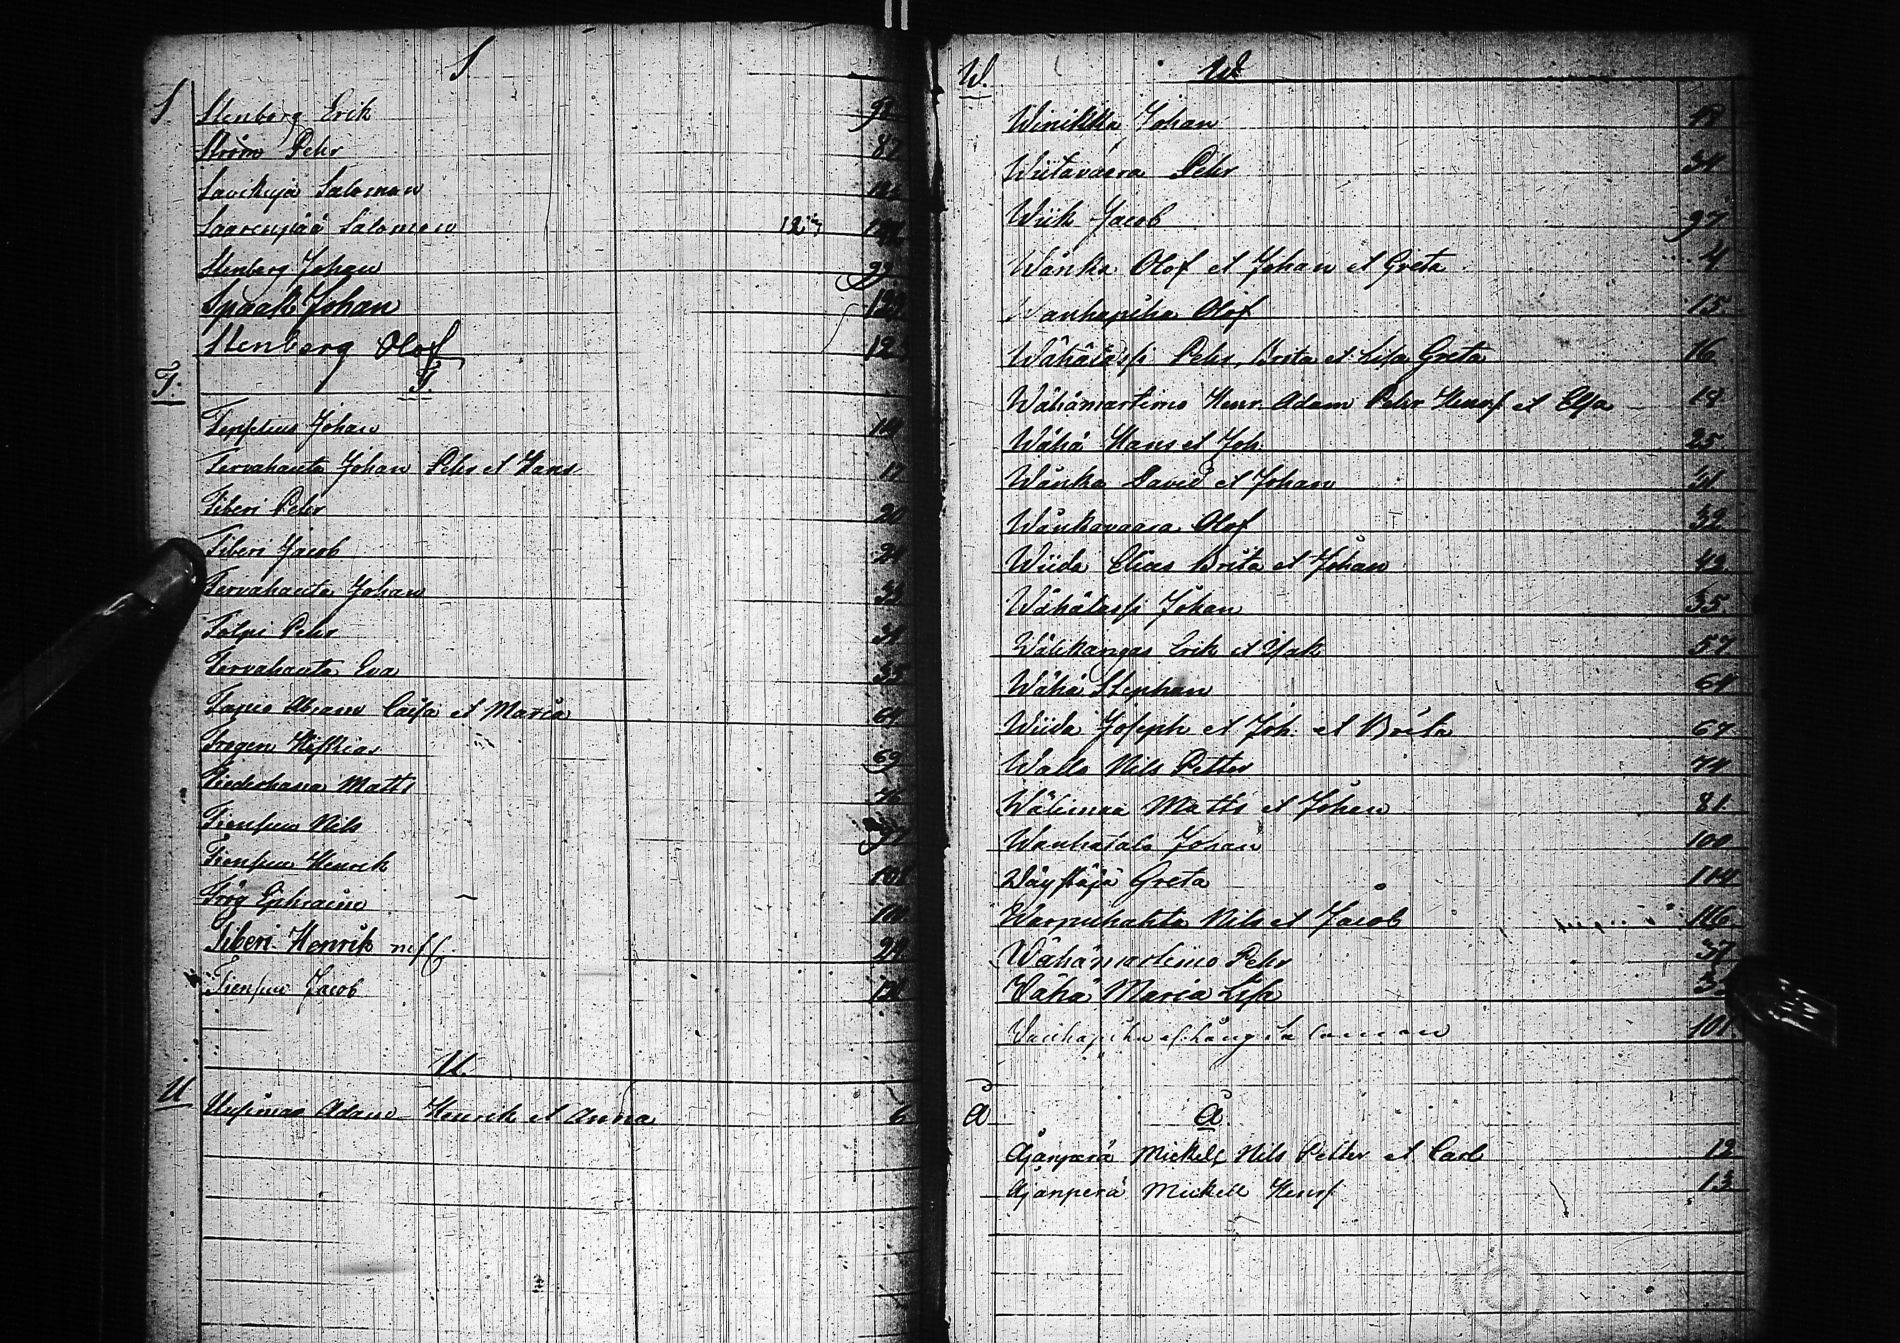 S
S Stenberg Erik 98
Ström Pehr 87
Lavikuja Salomon
Saarenpää Salomon 12
Stenberg Johan 92
Spaak Johan 120
Stenberg Olof 12
T. T.
Johan 14
Tervahauta Johan Pehr et Hans 17
Tiberi Pehr 20
Tiberi Jacob 24
Tervahauta Johan 33
Tölpi Pehr 34
Tervahauta Eva 35
Tapio Abram Caisa et Maria 64
Trogen 69
Matts 76
Tiensuu Nils
Tiensuu Henrik 108
Trög Ephraim
Tiberi Henrik 24
Tiensuu Jacob
U.
U Uusimaa Adam Henrik et Anna 6
W. W.
Winikka Johan 18
Wiitavaara Pehr 34
Wiik Jacob 97
Wänka Olof et Johan et Greta 4
Wanhapiha Olof 15
Wähälassi Pehr, Brita et Lisa Greta 16
Wähämartimo Henr. Adam Pehr Henrs et Elsa 18
Wähä Hans et Joh. 25
Wänka David et Johan 31
Wänkavaara Olof 32
Wiida Elias Brita et Johan 42
Wähälassi Johan 35
Wälikangas Erik et Isak 57
Wähä Stephan 64
Wiida Joseph et Joh. et Brita 67
Wallo Nils Petter 74
Wälimaa Matts et Johan 81
Wanhatalo Johan 100
Greta 114
Warpuhahta Nils et Jacob 116
Wähämartimo Pehr 37
Wähä Maria Lisa
101
Å Å.
Äjänperä Mickel, Nils Petter et Carl 12
Äjänperä Mickell Henrs 13